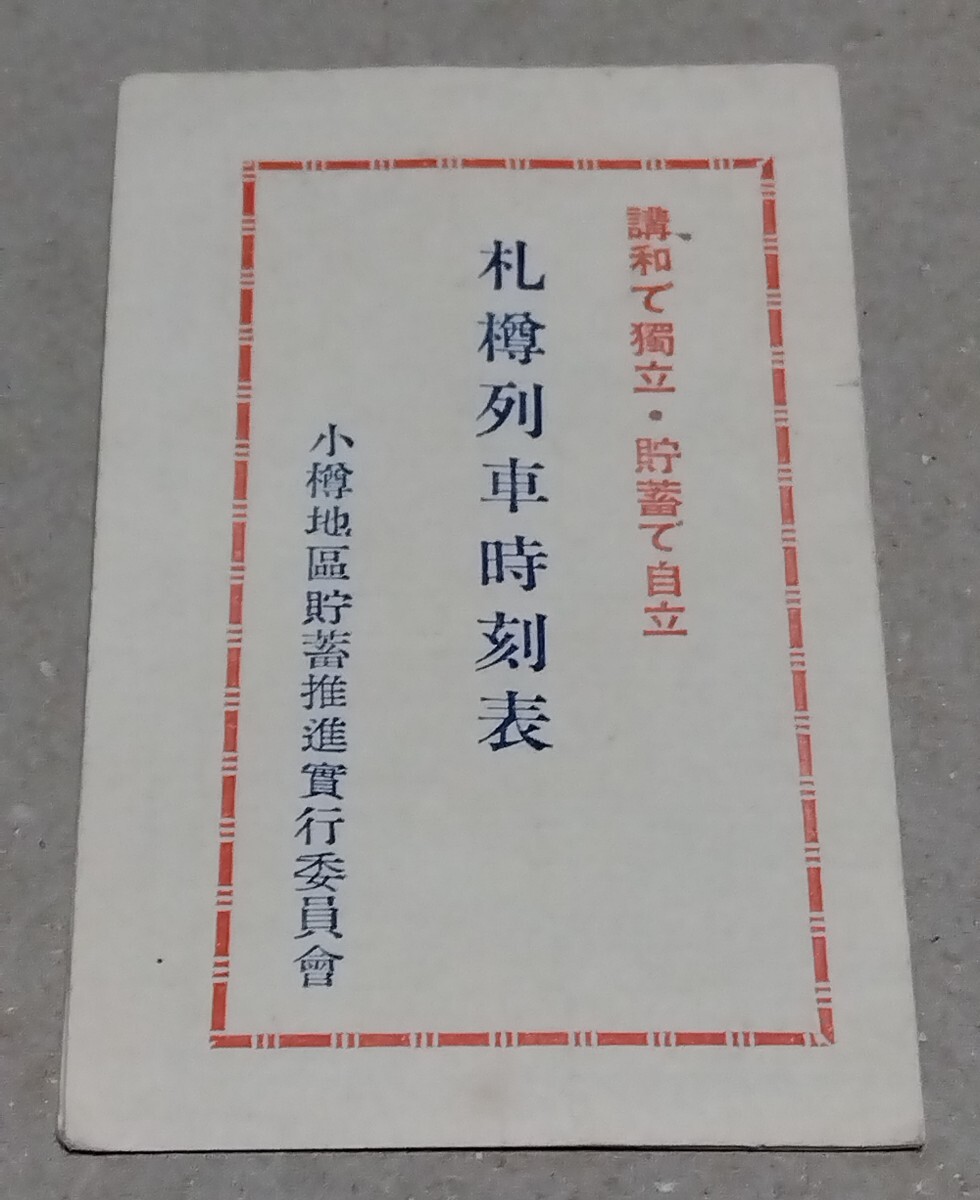 講和で獨立・貯蓄で自立
札樽列車時刻表
小樽地區貯蓄推進實行委員會